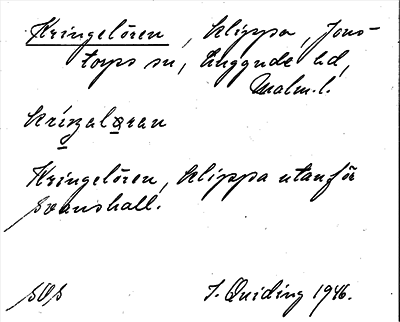 Kringelören, klippa, Jons-
torps sn, Luggude hd,
Malm.l.
kríŋelǫren
Kringelören, klippa utanför
Svanshall.
SOS J. Quiding 1946.